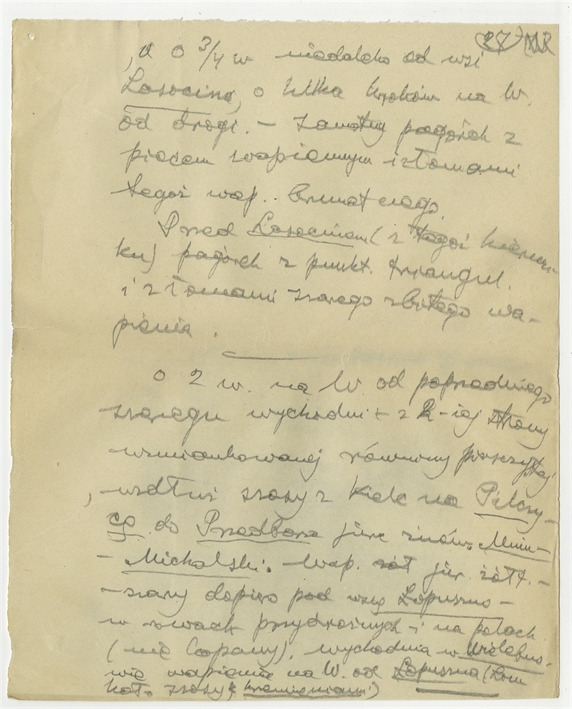 a o 3/4 w niedaleko od wsi
Łasocina, o kilka kroków na W.
od drogi. – pagórek z
piascem wapiennym i złomami
tegoż wap.
Przed Łasocinem (z tegoż kierun-
ku) pagórek z punkt. tryangul.
i złomami szarego zbitego wa-
pienia.
o 2 w. na W. od poprzedniego
szeregu wychodni – z 2-iej strony
wzmiankowanej równiny piaszczystej
, wzdłuż szosy z Kielc na Pilczy-
cę do Przedborza jurę znów.
Michalski. Wap. jur. żółt. –
– szary dopiero pod wsią Łopuszno –
w rowach przydrożnych – i na polach
(nie łopany), wychodnia w Wielebno-
wie wapienie na W. od Łopuszna (łom
koło szosy z krzemieniami)